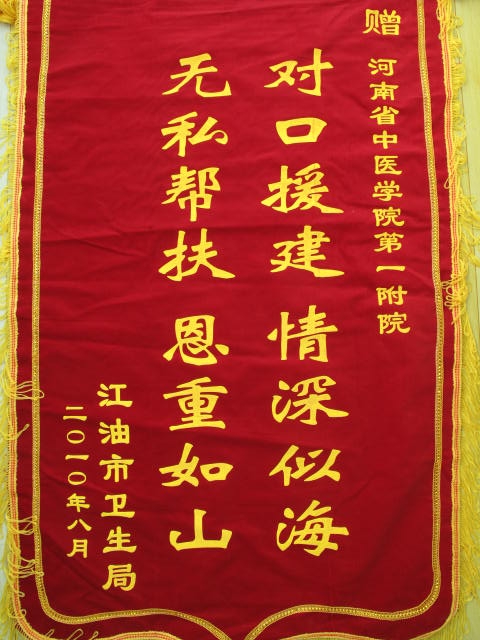 赠
河南省中医学院第一附院
对口援建 情深似海
无私帮扶 恩重如山
江油市卫生局
二〇一〇年八月